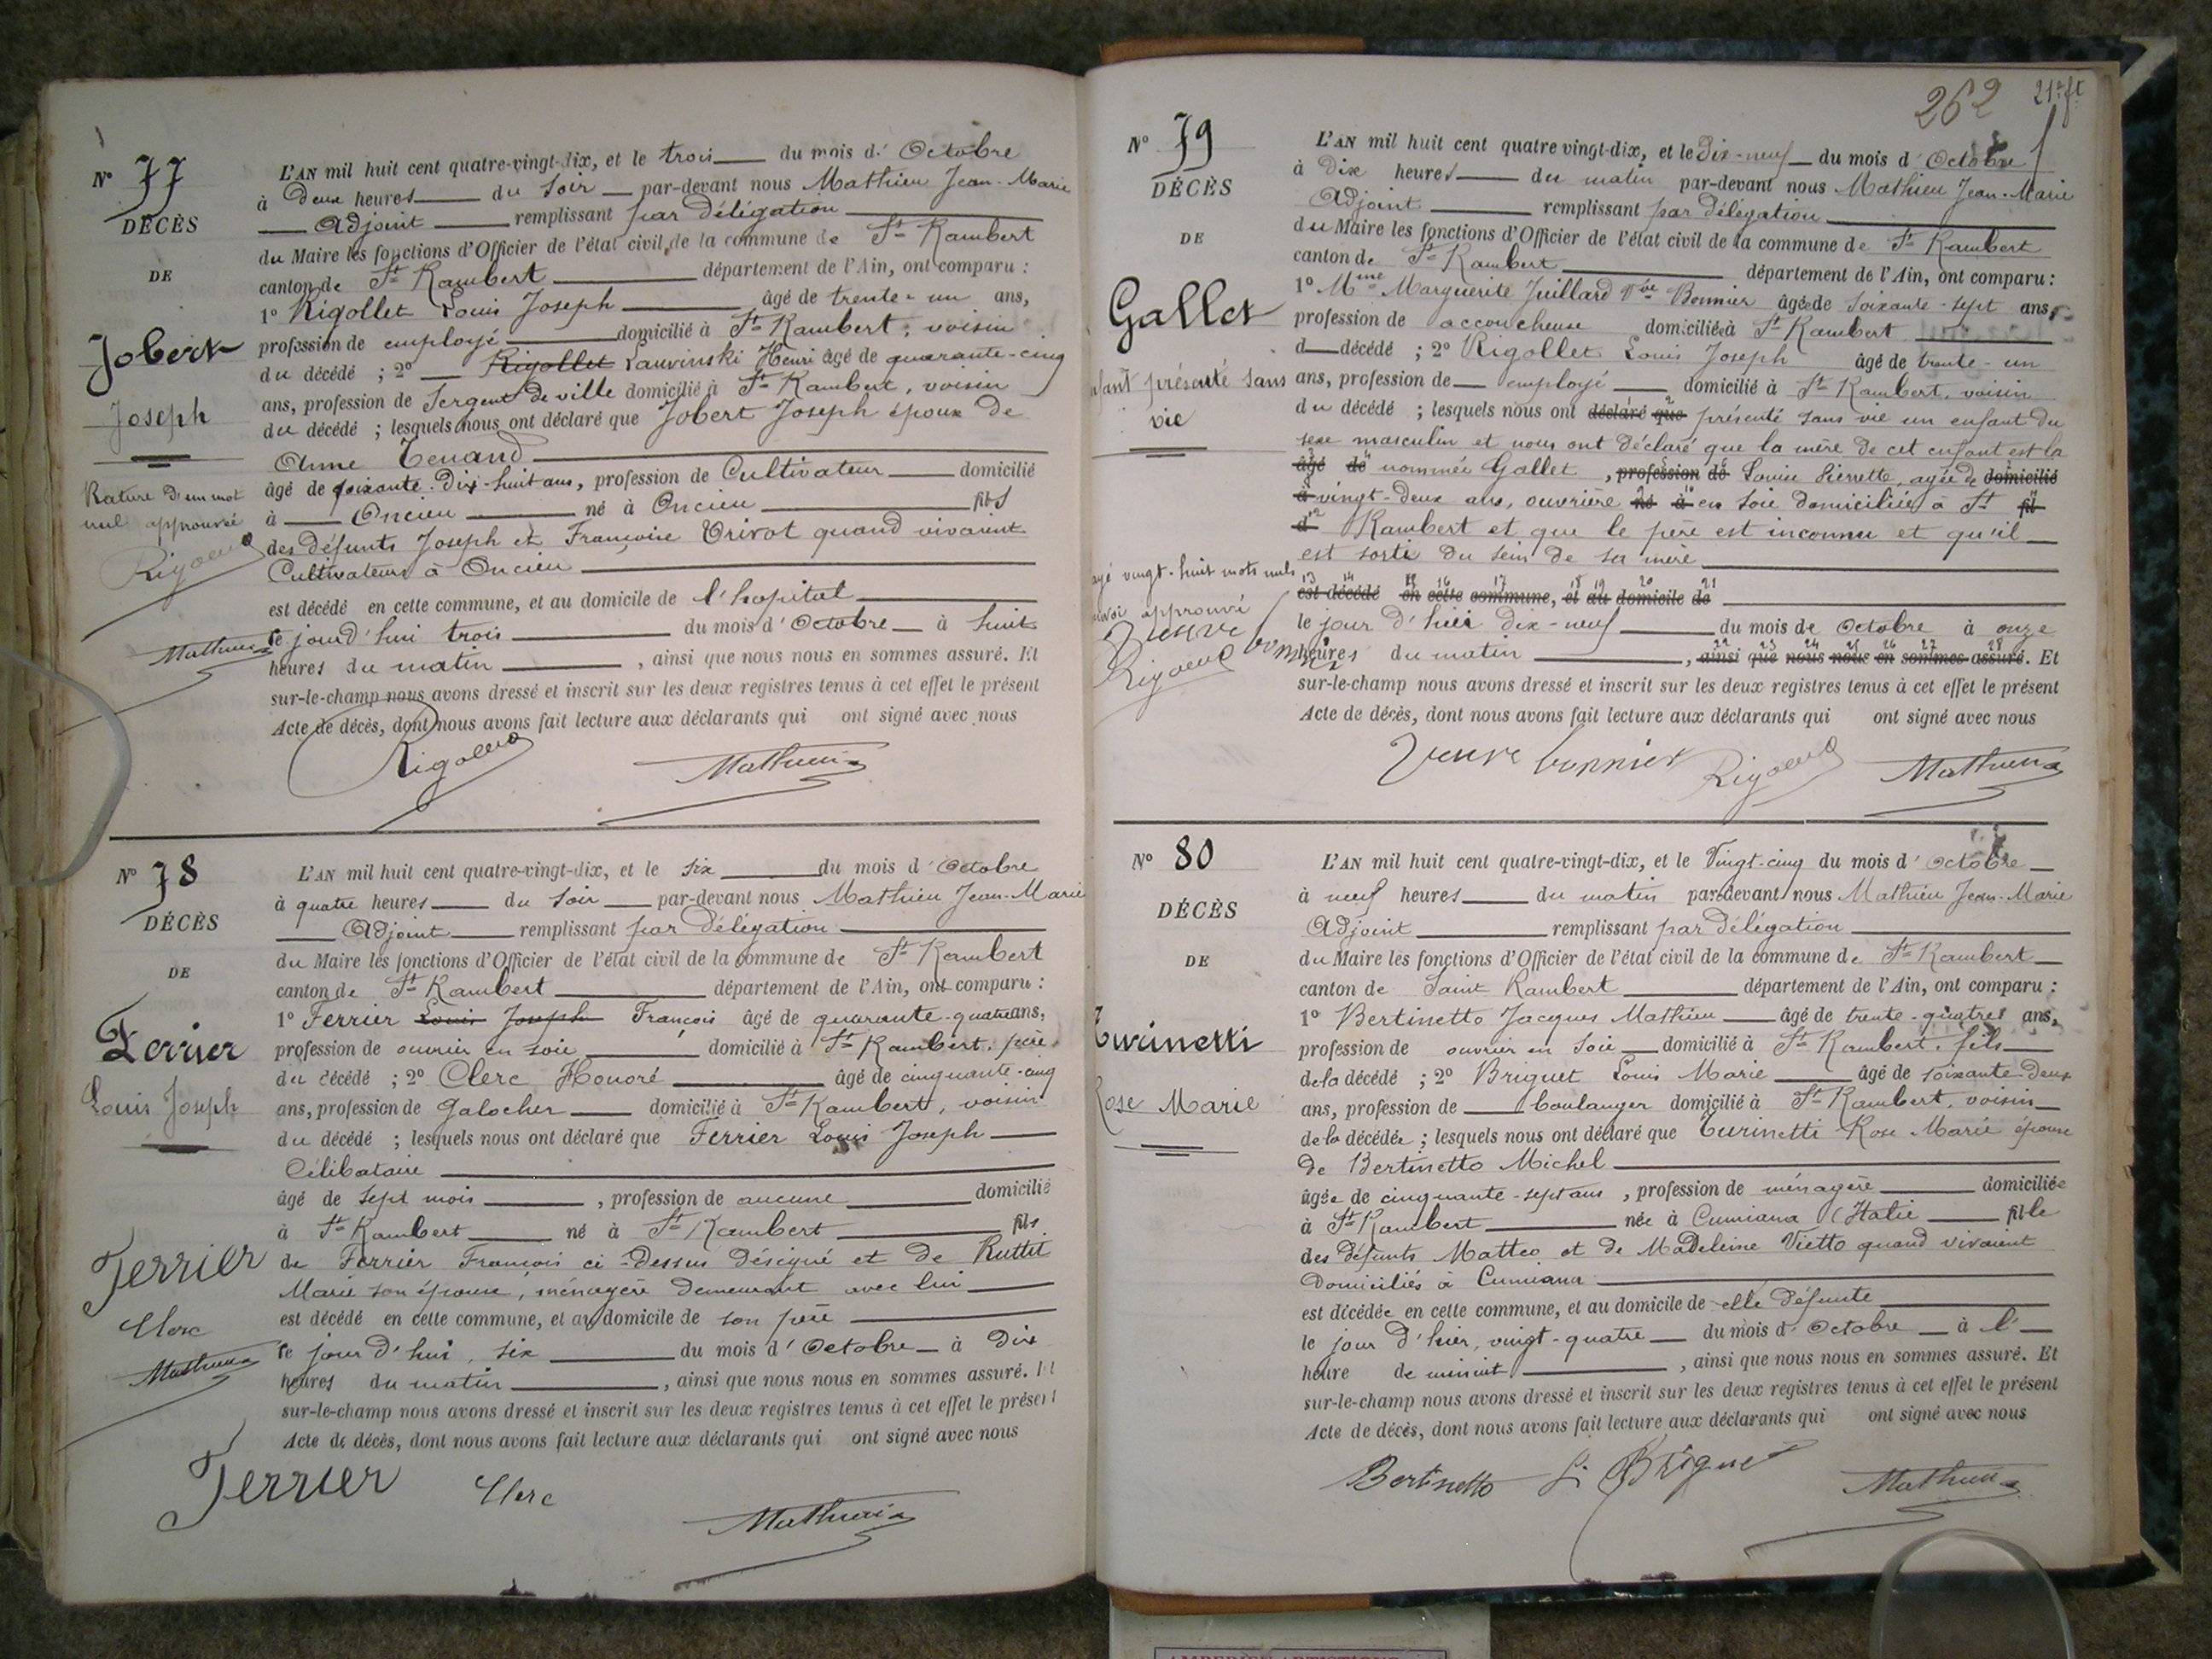 N° 77
DÉCÈS
DE
Jobert
Joseph
Rature d'un mot
nul approuvé
Rigollet
Mathieu
L'AN mil huit cent quatre-vingt-dix, et le trois du mois d' Octobre
à Deux heures du soir par-devant nous Mathieu Jean-Marie
Adjoint remplissant par délégation
du Maire les fonctions d'Officier de l'état civil de la commune de St Rambert
canton de St Rambert département de l'Ain, ont comparu :
1° Rigollet Louis Joseph âgé de trente-un ans,
profession de employé domicilié à St Rambert, voisin
du décédé ; 2° Rigollet Lauvinski Henri âgé de quarante-cinq
ans, profession de Sergent de ville domicilié à St Rambert, voisin
du décédé ; lesquels nous ont déclaré que Jobert Joseph époux de
Anne Tenand
âgé de soixante-dix-huit ans, profession de Cultivateur domicilié
à Oncieu né à Oncieu fils
des défunts Joseph et Françoise Trivot quand vivaient
Cultivateurs à Oncieu
est décédé en cette commune, et au domicile de l'hopital
le jourd'hui trois du mois d' Octobre à huit
heures du matin , ainsi que nous nous en sommes assuré. Et
sur-le-champ nous avons dressé et inscrit sur les deux registres tenus à cet effet le présent
Acte de décès, dont nous avons fait lecture aux déclarants qui ont signé avec nous
Rigollet Mathieu
N° 78
DÉCÈS
DE
Ferrier
Louis Joseph
Ferrier
Clerc
Mathieu
L'AN mil huit cent quatre-vingt-dix, et le six du mois d' Octobre
à quatre heures du soir par-devant nous Mathieu Jean-Marie
Adjoint remplissant par délégation
du Maire les fonctions d'Officier de l'état civil de la commune de St Rambert
canton de St Rambert département de l'Ain, ont comparu :
1° Ferrier Louis Joseph François âgé de quarante-quatre ans,
profession de ouvrier en soie domicilié à St Rambert, père
du décédé ; 2° Clerc Honoré âgé de cinquante-cinq
ans, profession de Galocher domicilié à St Rambert, voisin
du décédé ; lesquels nous ont déclaré que Ferrier Louis Joseph
Célibataire
âgé de sept mois , profession de aucune domicilié
à St Rambert né à St Rambert fils
de Ferrier François ci-dessus désigné et de Ruttit
Marie son épouse, ménagère demeurant avec lui
est décédé en cette commune, et au domicile de son père
le jour d'hui, six du mois d' Octobre à Dix
heures du matin , ainsi que nous nous en sommes assuré. Et
sur-le-champ nous avons dressé et inscrit sur les deux registres tenus à cet effet le présent
Acte de décès, dont nous avons fait lecture aux déclarants qui ont signé avec nous
Ferrier Clerc Mathieu
262
N° 79
DÉCÈS
DE
Gallet
nfant présenté sans
vie
ayé vingt-huit mots nuls
nvoi approuvé
Veuve bonnier
Rigollet
L'AN mil huit cent quatre vingt-dix, et le Dix-neuf du mois d' Octobre
à Dix heures du matin par-devant nous Mathieu Jean-Marie
Adjoint remplissant par délégation
du Maire les fonctions d'Officier de l'état civil de la commune de St Rambert
canton de St Rambert département de l'Ain, ont comparu :
1° Mme Marguerite Juillard Vve Bonnier âgée de soixante-sept ans,
profession de accoucheuse domiciliée à St Rambert
d décédé ; 2° Rigollet Louis Joseph âgé de trente-un
ans, profession de employé domicilié à St Rambert, voisin
du décédé ; lesquels nous ont déclaré que présenté sans vie un enfant du
sexe masculin et nous ont déclaré que la mère de cet enfant est la
âgé de nommée Gallet , profession de Louise Pierrette, agée de domicilié
à vingt-deux ans, ouvrière né à en soie domiciliée à St fil
d Rambert et que le père est inconnu et qu'il
est sorti du sein de sa mère
13 14 15 16 17 18 19 20 21
est décédé en cette commune, et au domicile de
le jour d'hui dix-neuf du mois de Octobre à onze
22 23 24 25 26 27 28
heures du matin , ainsi que nous nous en sommes assuré. Et
sur-le-champ nous avons dressé et inscrit sur les deux registres tenus à cet effet le présent
Acte de décès, dont nous avons fait lecture aux déclarants qui ont signé avec nous
Veuve bonnier Rigollet Mathieu
N° 80
DÉCÈS
DE
Turinetti
Rose Marie
L'AN mil huit cent quatre-vingt-dix, et le Vingt-cinq du mois d' Octobre
à neuf heures du matin par-devant nous Mathieu Jean-Marie
Adjoint remplissant par délégation
du Maire les fonctions d'Officier de l'état civil de la commune de St Rambert
canton de Saint Rambert département de l'Ain, ont comparu :
1° Bertinetto Jacques Mathieu âgé de trente-quatre ans,
profession de ouvrier en soie domicilié à St Rambert, fils
de la décédé ; 2° Briguet Louis Marie âgé de soixante-deux
ans, profession de boulanger domicilié à St Rambert, voisin
de la décédée ; lesquels nous ont déclaré que Turinetti Rose Marie épouse
de Bertinetto Michel
âgée de cinquante-sept ans , profession de ménagère domiciliée
à St Rambert née à Cumiana (Italie fille
des défunts Matteo et de Madeleine Vietto quand vivaient
Domiciliés à Cumiana
est décédée en cette commune, et au domicile de elle défunte
le jour d'hier, vingt-quatre du mois d' Octobre à l'
heure de minuit , ainsi que nous nous en sommes assuré. Et
sur-le-champ nous avons dressé et inscrit sur les deux registres tenus à cet effet le présent
Acte de décès, dont nous avons fait lecture aux déclarants qui ont signé avec nous
Bertinetto L. Briguet Mathieu